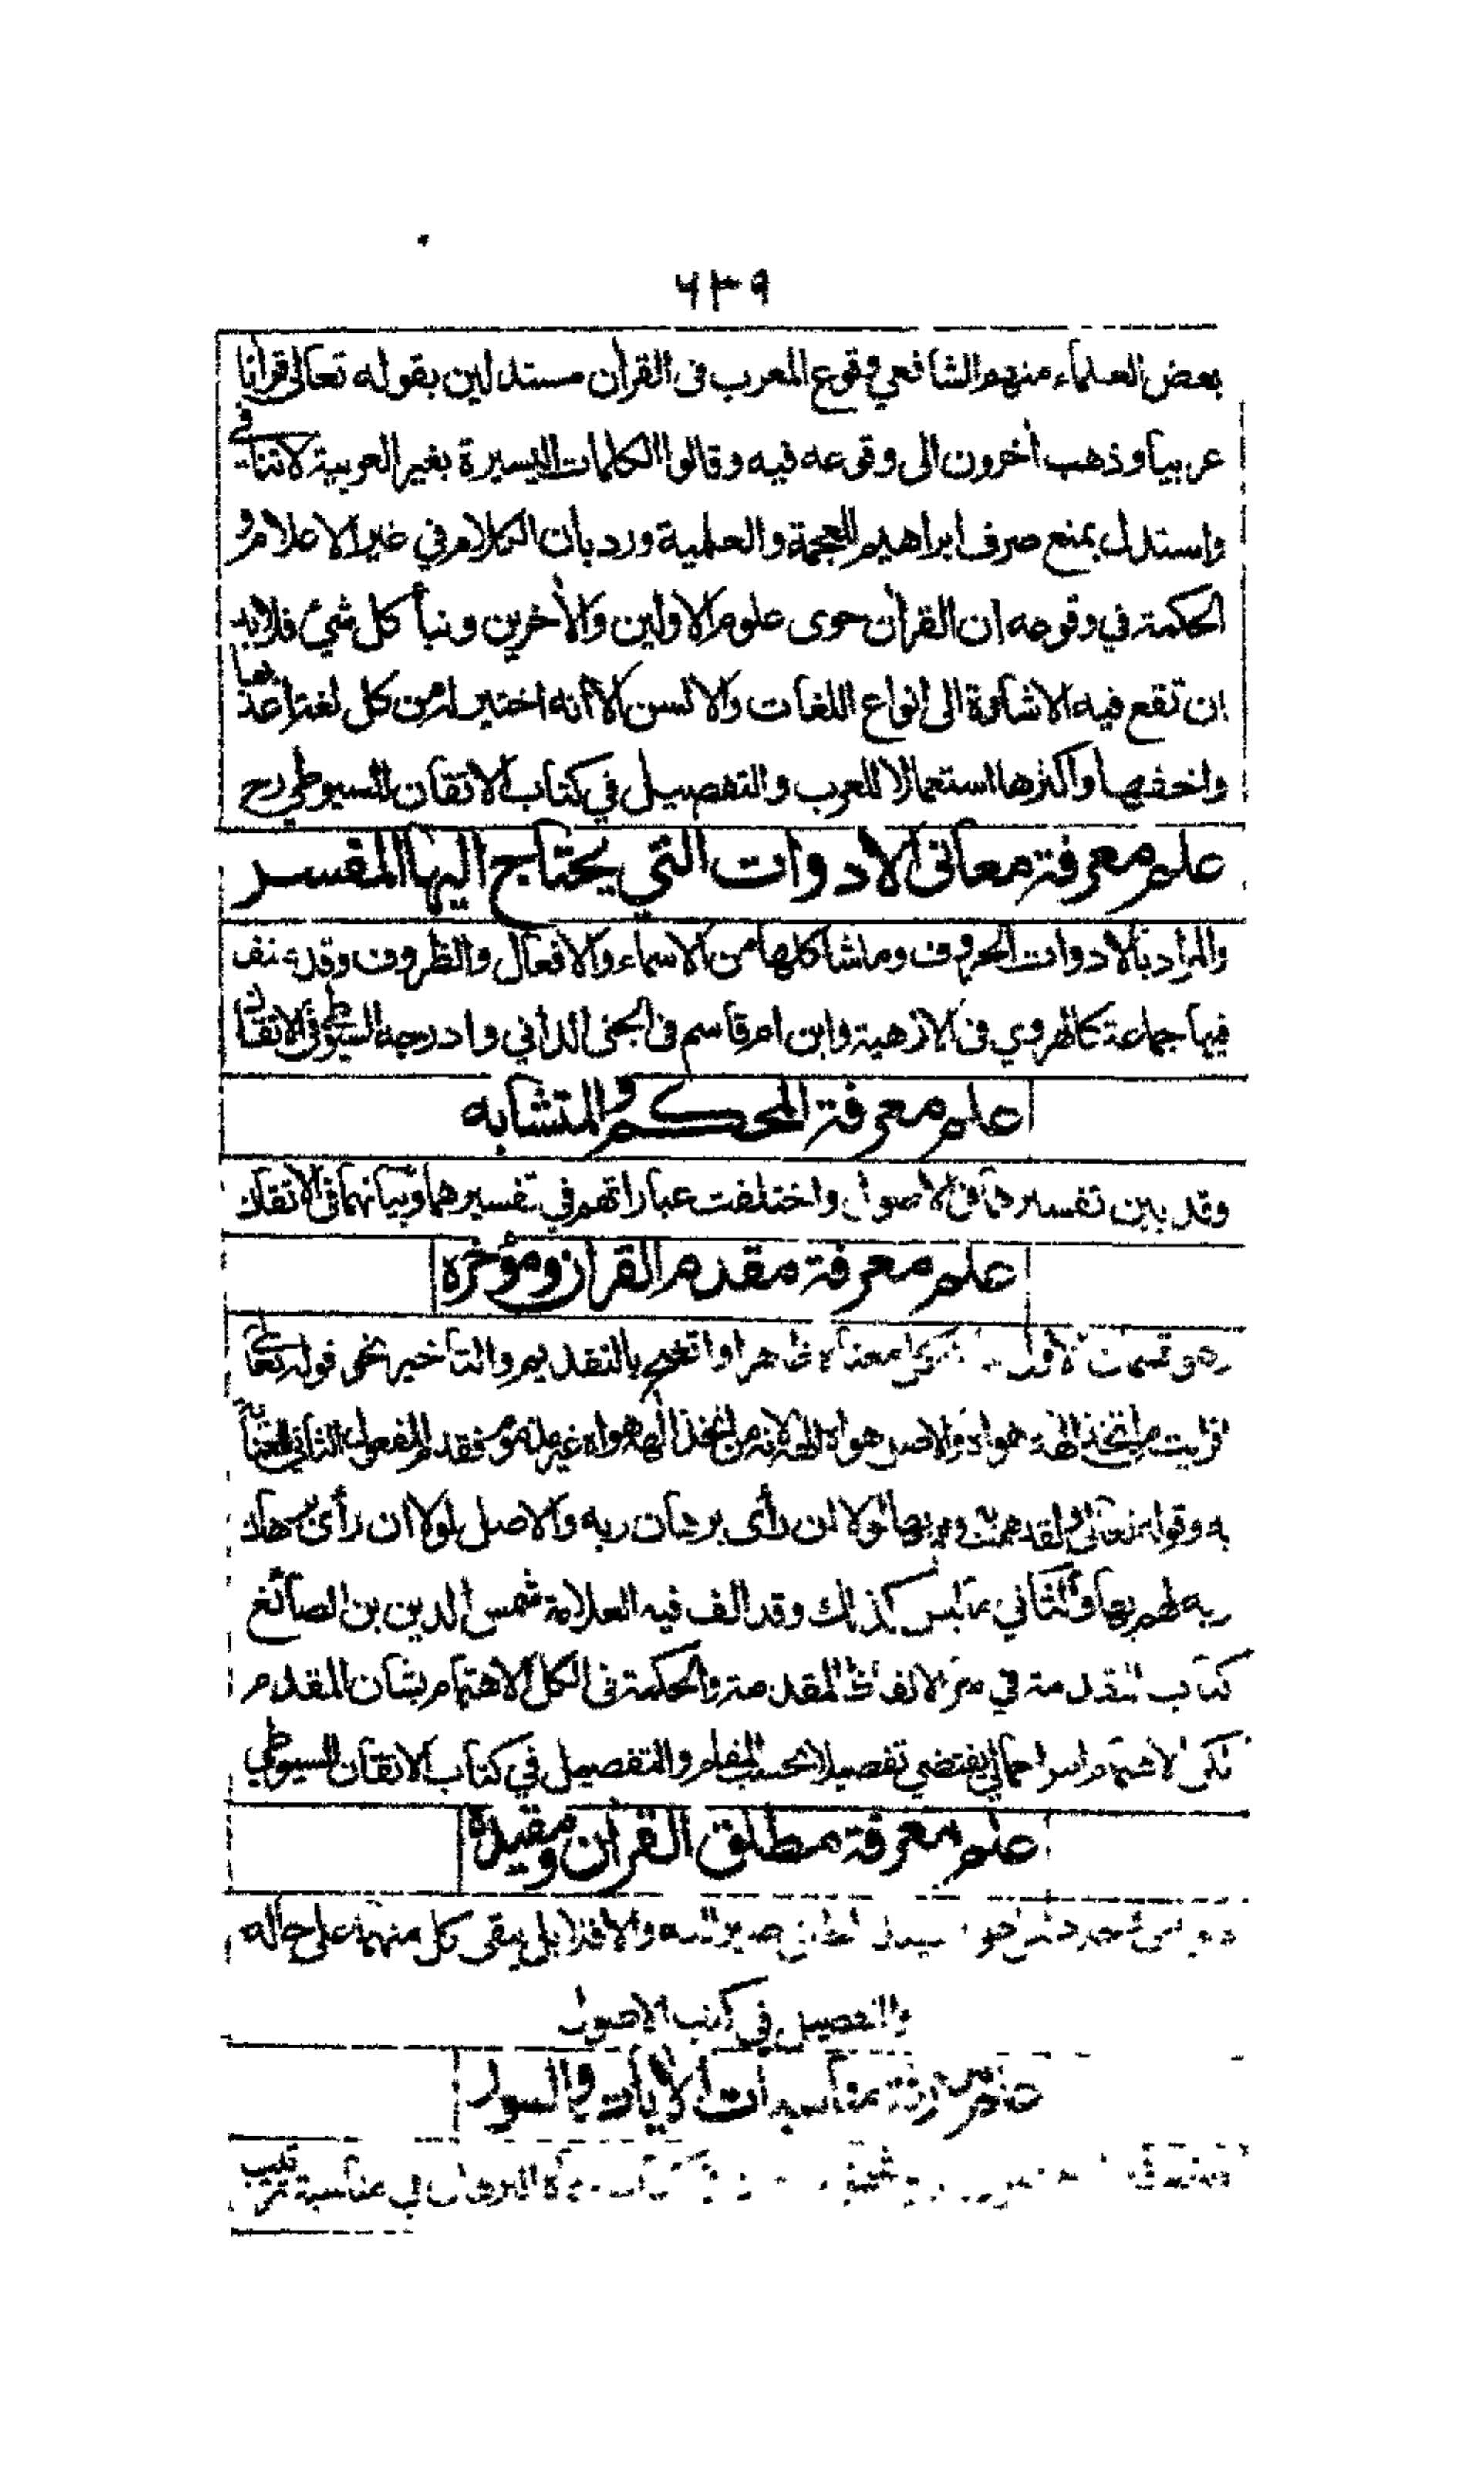 ٦٣٩
بعض العلماء منهم الشافعي وقوع المعرب فى القرأن مستدلين بقوله تعالى قرأنا
عربيا وذهب أخرون الى وقوعه فيه وقالوا الكلمات اليسيرة بغير العربية لاتنافي
واستدل بمنع صرف ابراهيم للعجمة والعلمية ورد بان الكلام في غير الاعلام و
الحكمة في وقوعه ان القرأن حوى علوم الاولين والأخرين ونبأ كل شئ فلابد
ان تقع فيه الاشارة الى انواع اللغات والالسن الا انه اختير له من كل لغة اعذبها
واخفها واكثرها استعمالا للعرب والتفصيل في كتاب الاتقان للسيوطي رح
علم معرفة معانى الادوات التي يحتاج اليها المفسر
والمراد بالادوات الحروف وما شاكلها من الاسماء والافعال والظروف وقد صنف
فيها جماعة كالهروي فى الازهية وابن ام قاسم فى الجنى الدانى وادرجه السيوطي فى الاتقان
علم معرفة المحكم والمتشابه
وقد بين تفسيرهما فى الاصول واختلفت عباراتهم في تفسيرهما وبيانهما فى الاتقان
علم معرفة مقدم القرأن ومؤخره
وهو قسمان الاول معناه ظاهرا واتضح بالتقديم والتأخير نحو قوله تعالى
افرايت من اتخذ الهه هواه والاصل هواه الهه لانه من اتخذ الهه هواه غير مذموم فقدم المفعول الثاني
به وقوله تعالى ولقد همت به وهم بها لولا ان رأى برهان ربه والاصل لولا ان رأى برهان
ربه لهم بها والثاني ما ليس كذلك وقد الف فيه العلامة شمس الدين بن الصائغ
كتاب المقدمة في سر الالفاظ المقدمة والحكمة فى الكل الاهتمام بشان المقدم
لكن الاهتمام امر اجمالي يقتضي تفصيلا بحسب المقام والتفصيل في كتاب الاتقان للسيوطي
علم معرفة مطلق القرأن ومقيده
المطلق والافلا بل يبقى كل منهما على حاله
والتفصيل في كتب الاصول
علم معرفة مناسبات الأيات والسور
البرهان في مناسبة ترتيب